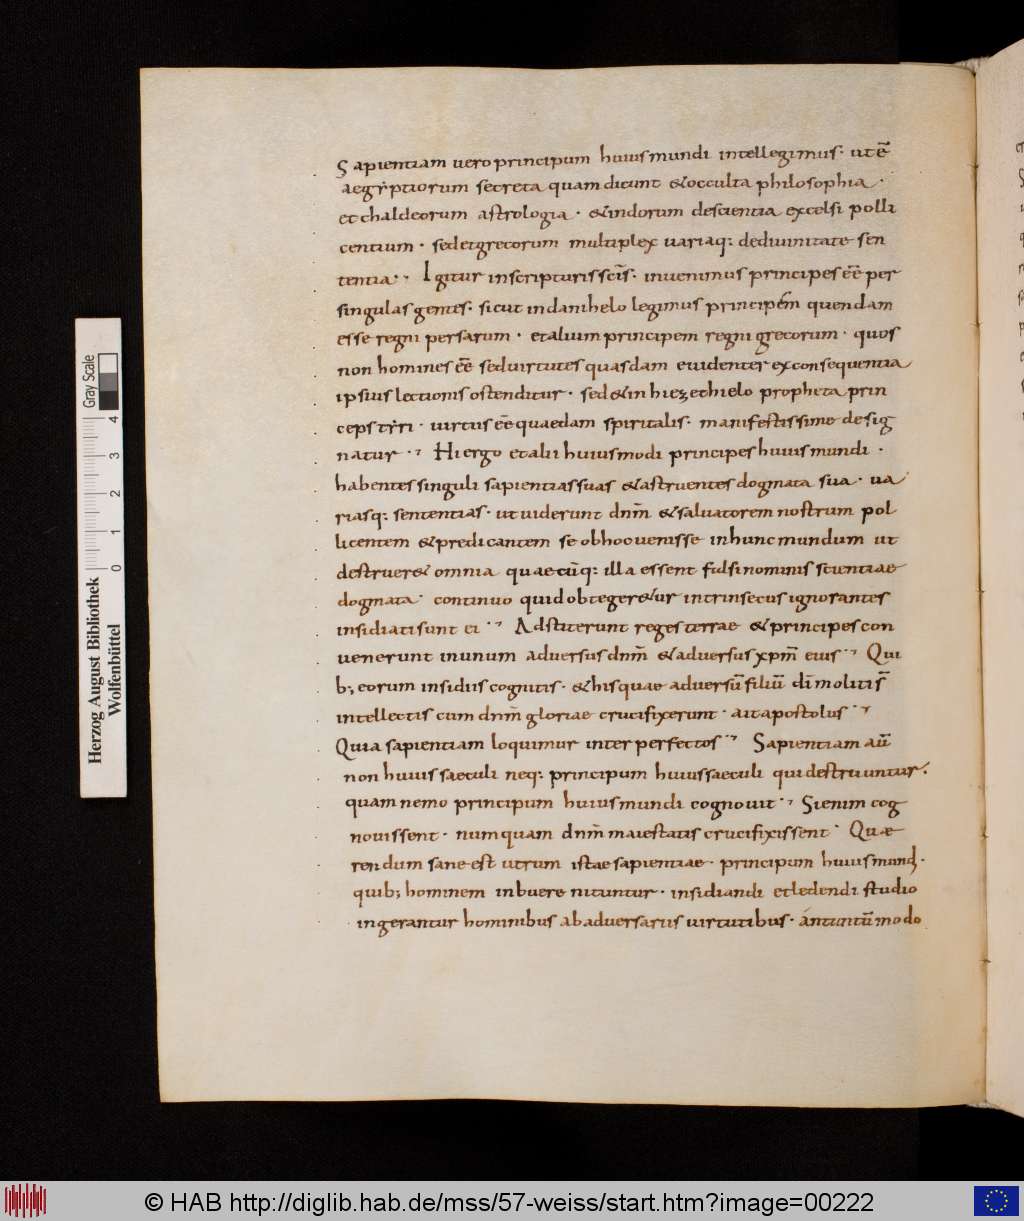 Sapientiam uero principum huius mundi intellegimus· ut ē
aegẏptiorum secreta quam dicunt & occulta philosophia·
et chaldeorum astrologia· & indorum descientia excelsi polli
centium· sed et grecorum multiplex uariaq: de diuinitate sen
tentia·, Igitur in scripturis scīs· inuenimus principes eē per
singulas gentes· sicut in danihelo legimus principem quendam
esse regni persarum· et alium principem regni grecorum· quos
non homines eē sed uirtutes quasdam euidenter ex consequentia
ipsius lectionis ostenditur· sed & in hiezechielo propheta prin
ceps tẏri· uirtus eē quaedam spiritalis· manifestissime desig
natur·, Hi ergo et alii huiusmodi principes huius mundi·
habentes singuli sapientias suas & astruentes dogmata sua· ua
riasq: sententias· ut uiderunt dnm̄ & saluatorem nostrum pol
licentem & predicantem se ob hoc uenisse in hunc mundum ut
destruer& omnia quaecūq: illa essent falsi nominis scientiae
dogmata· continuo quid obteger&ur intrinsecus ignorantes
insidiati sunt ei·, Adstiterunt reges terrae & principes con
uenerunt in unum aduersus dnm̄ & aduersus xpm̄ eius·, Qui
b; eorum insidiis cognitis· & his quae aduersū filiū dī molitis̄
intellectis cum dnm̄ gloriae crucifixerunt· ait apostolus·,
Quia sapientiam loquimur inter perfectos·, Sapientiam aū
non huius saeculi neq: principum huius saeculi qui destruuntur·
quam nemo principum huius mundi cognouit·, Si enim cog
nouissent· numquam dnm̄ maiestatis crucifixissent· Quae
rendum sane est utrum istae sapientiae· principum huius mundi·
quib; hominem inbuere nituntur· insidiandi et ledendi studio
ingerantur hominibus ab aduersariis uirtutibus· án tantūmodo
Herzog August Bibliothek
Wolfenbüttel
Gray Scale
0 1 2 3 4
© HAB http://diglib.hab.de/mss/57-weiss/start.htm?image=00222